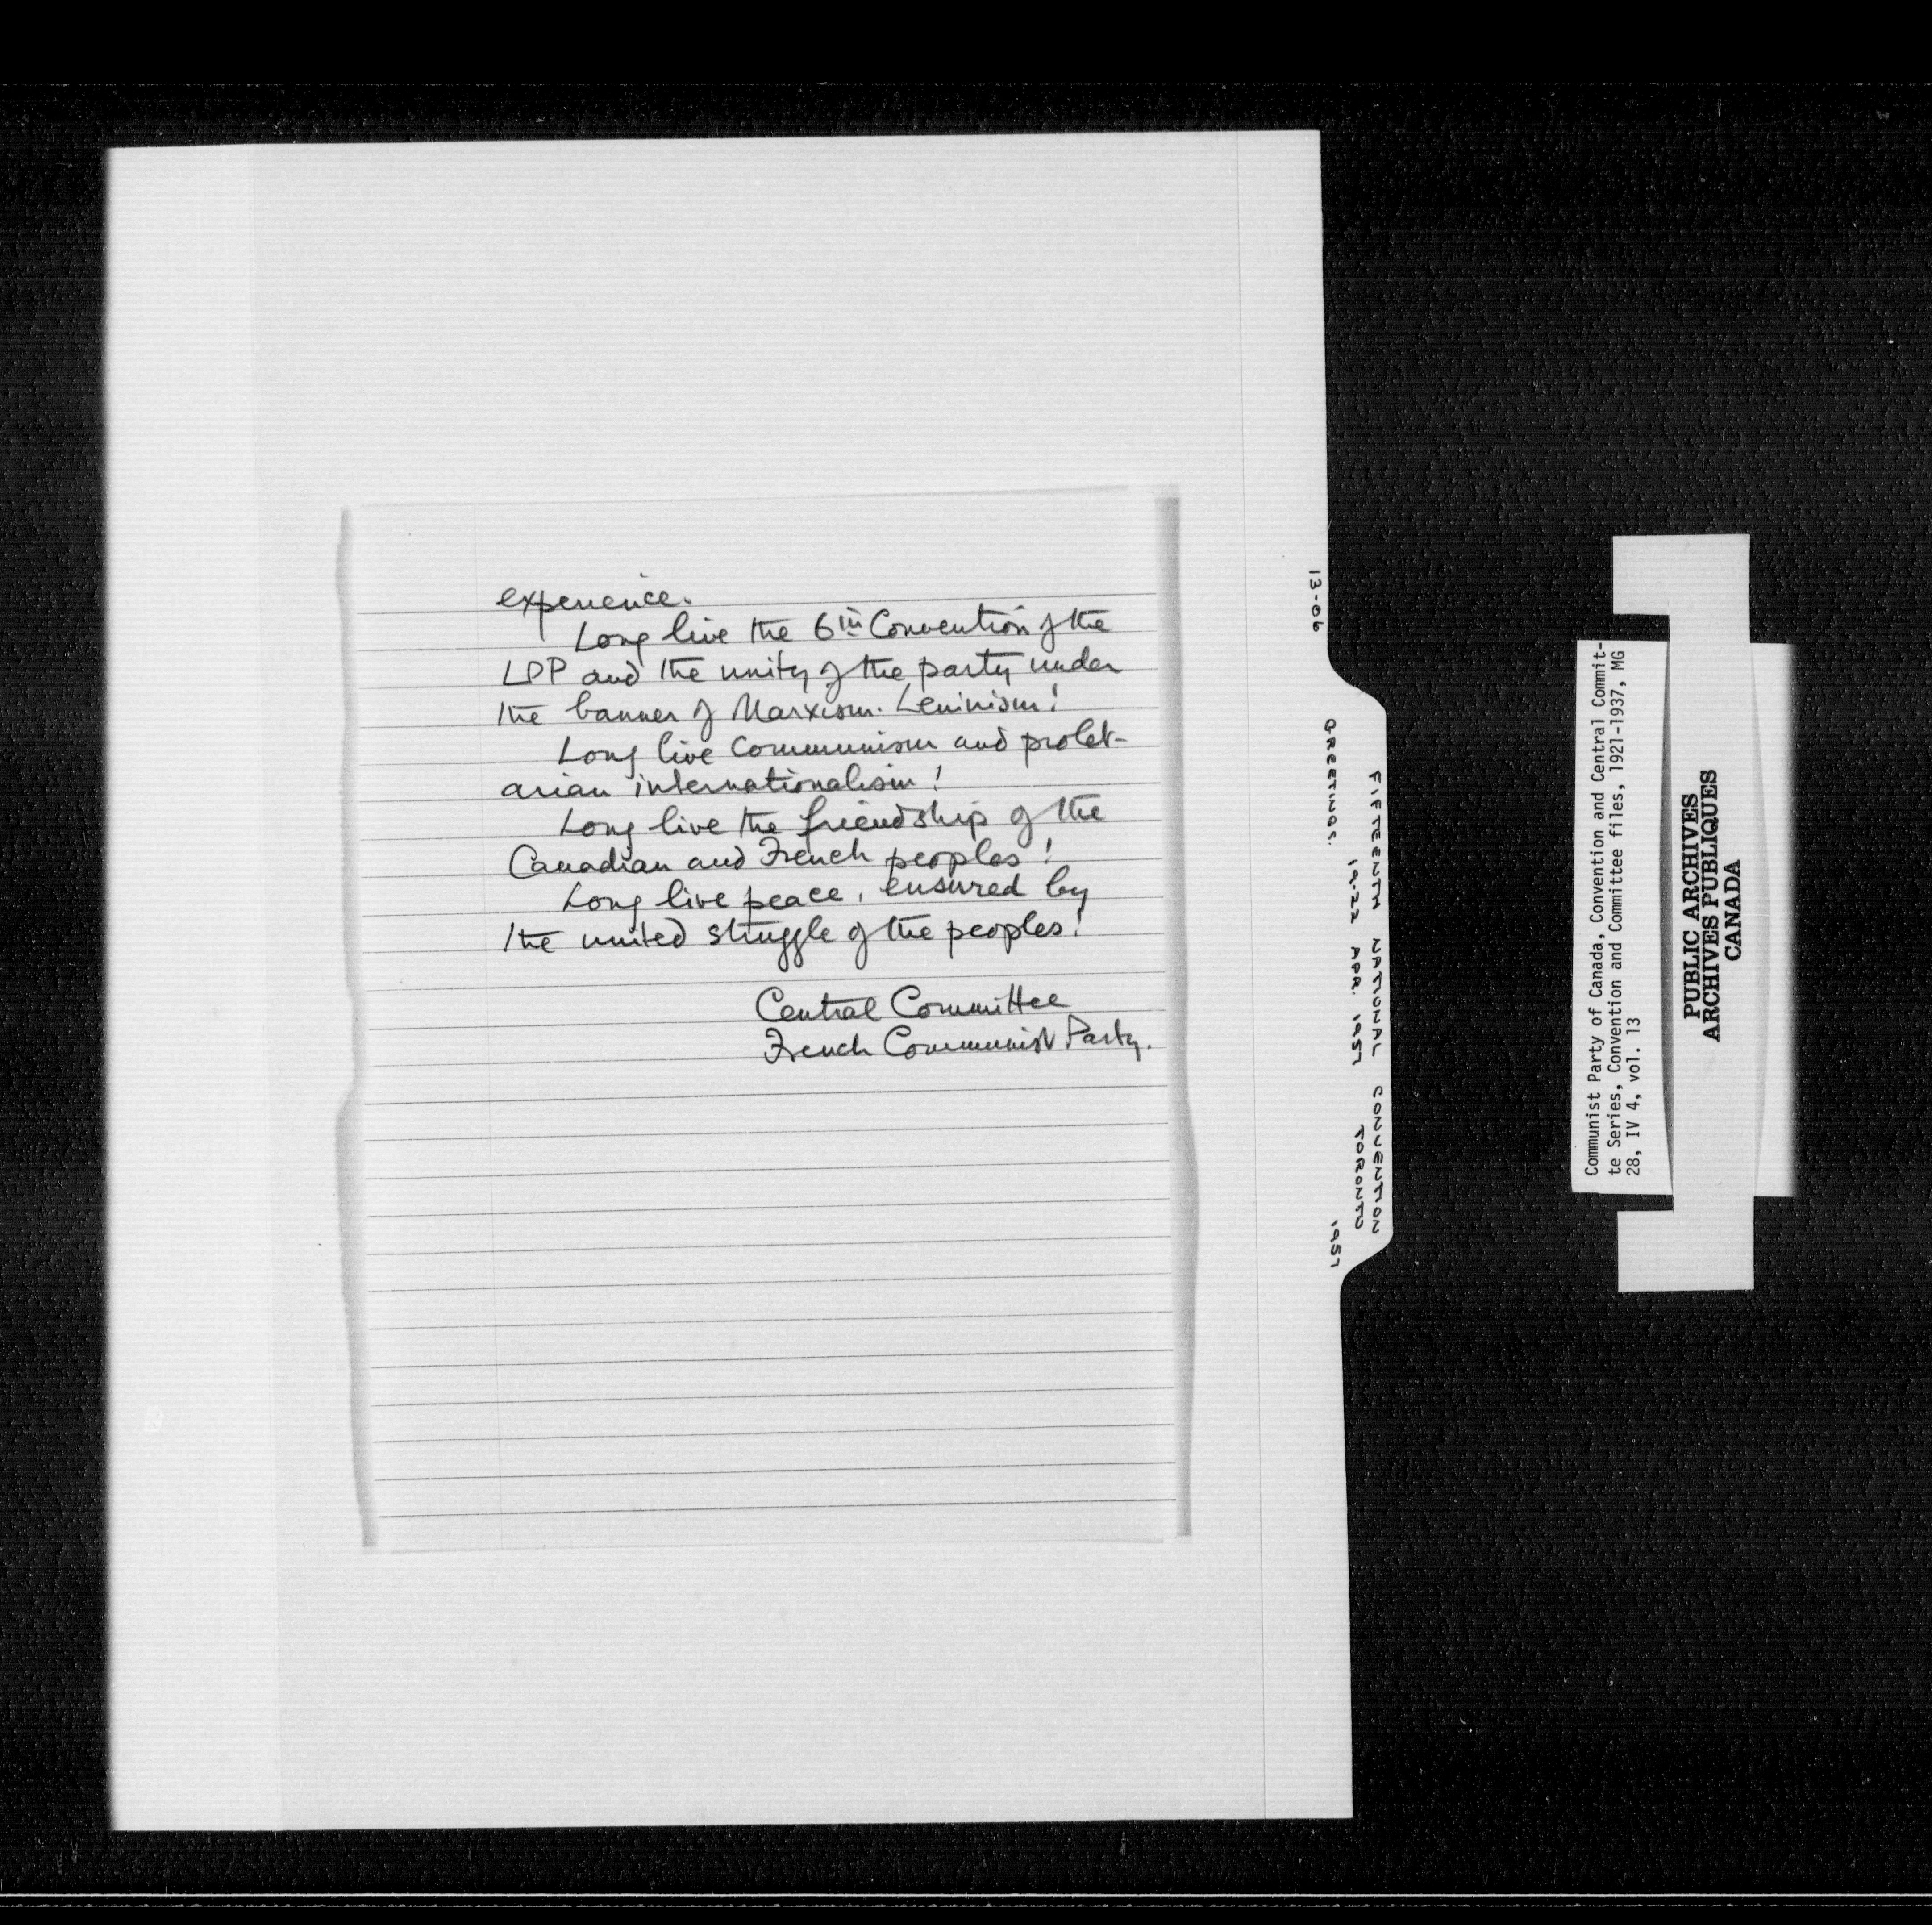 experience.
Long live the 6th Convention of the
LPP and the unity of the party under
the banner of Marxism-Leninism!
Long live communism and prolet-
arian internationalism!
Long live the friendship of the
Canadian and French peoples!
Long live peace, ensured by
the united struggle of the peoples!
Central Committee
French Communist Party.
13-06
GREETINGS.
1957
FIFTEENTH NATIONAL CONVENTION
19-22 APR. 1957 TORONTO
Communist Party of Canada, Convention and Central Commit-
te Series, Convention and Committee files, 1921-1937, MG
28, IV 4, vol. 13
PUBLIC ARCHIVES
ARCHIVES PUBLIQUES
CANADA